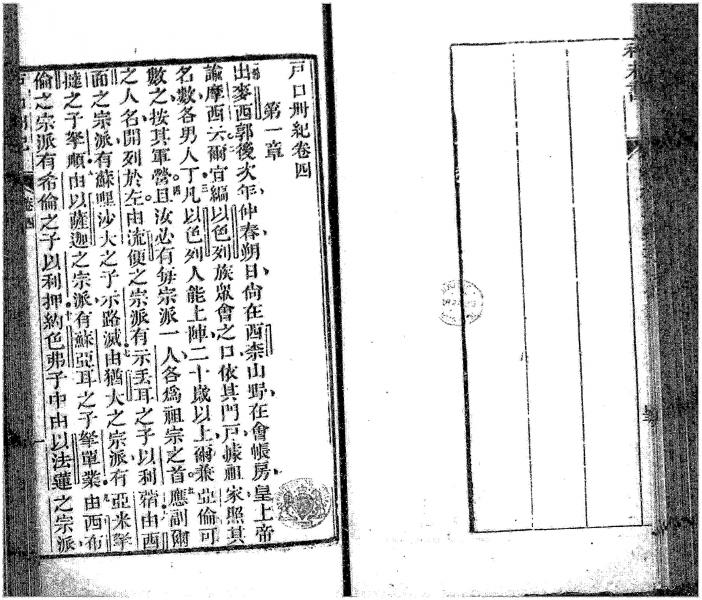 戸口冊紀卷四
第一章
出麥西郭後次年仲春朔日尙在西柰山野在會帳房皇上帝
諭摩西云爾宜編以色列族眾會之口依其門戸據祖家照其
名數各男人丁凡以色列人能上陣二十歲以上爾兼亞倫可
數之按其軍營且汝必有每宗派一人各爲祖宗之首應副爾
之人名開列於左由流便之宗派有示丟耳之子以利𣿰由西
面之宗派有蘇嘿沙大之子示路滅由猶大之宗派有亞米拿
撻之子拿順由以薩迦之宗派有蘇亞耳之子拿單業由西布
倫之宗派有希倫之子以利押約色弗子中由以法蓮之宗派
卷四